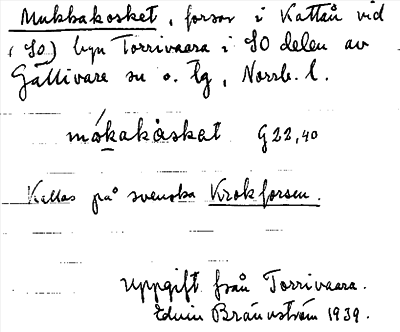 Mukkakosket, forsar i Kattån vid
(SO) byn Torrivaara i SO delen av
Gällivare sn o. tg, Norrb. l.
mókakåskat G22,40
Kallas på svenska Krokforsen.
Uppgift från Torrivaara.
Edvin Brännström 1939.